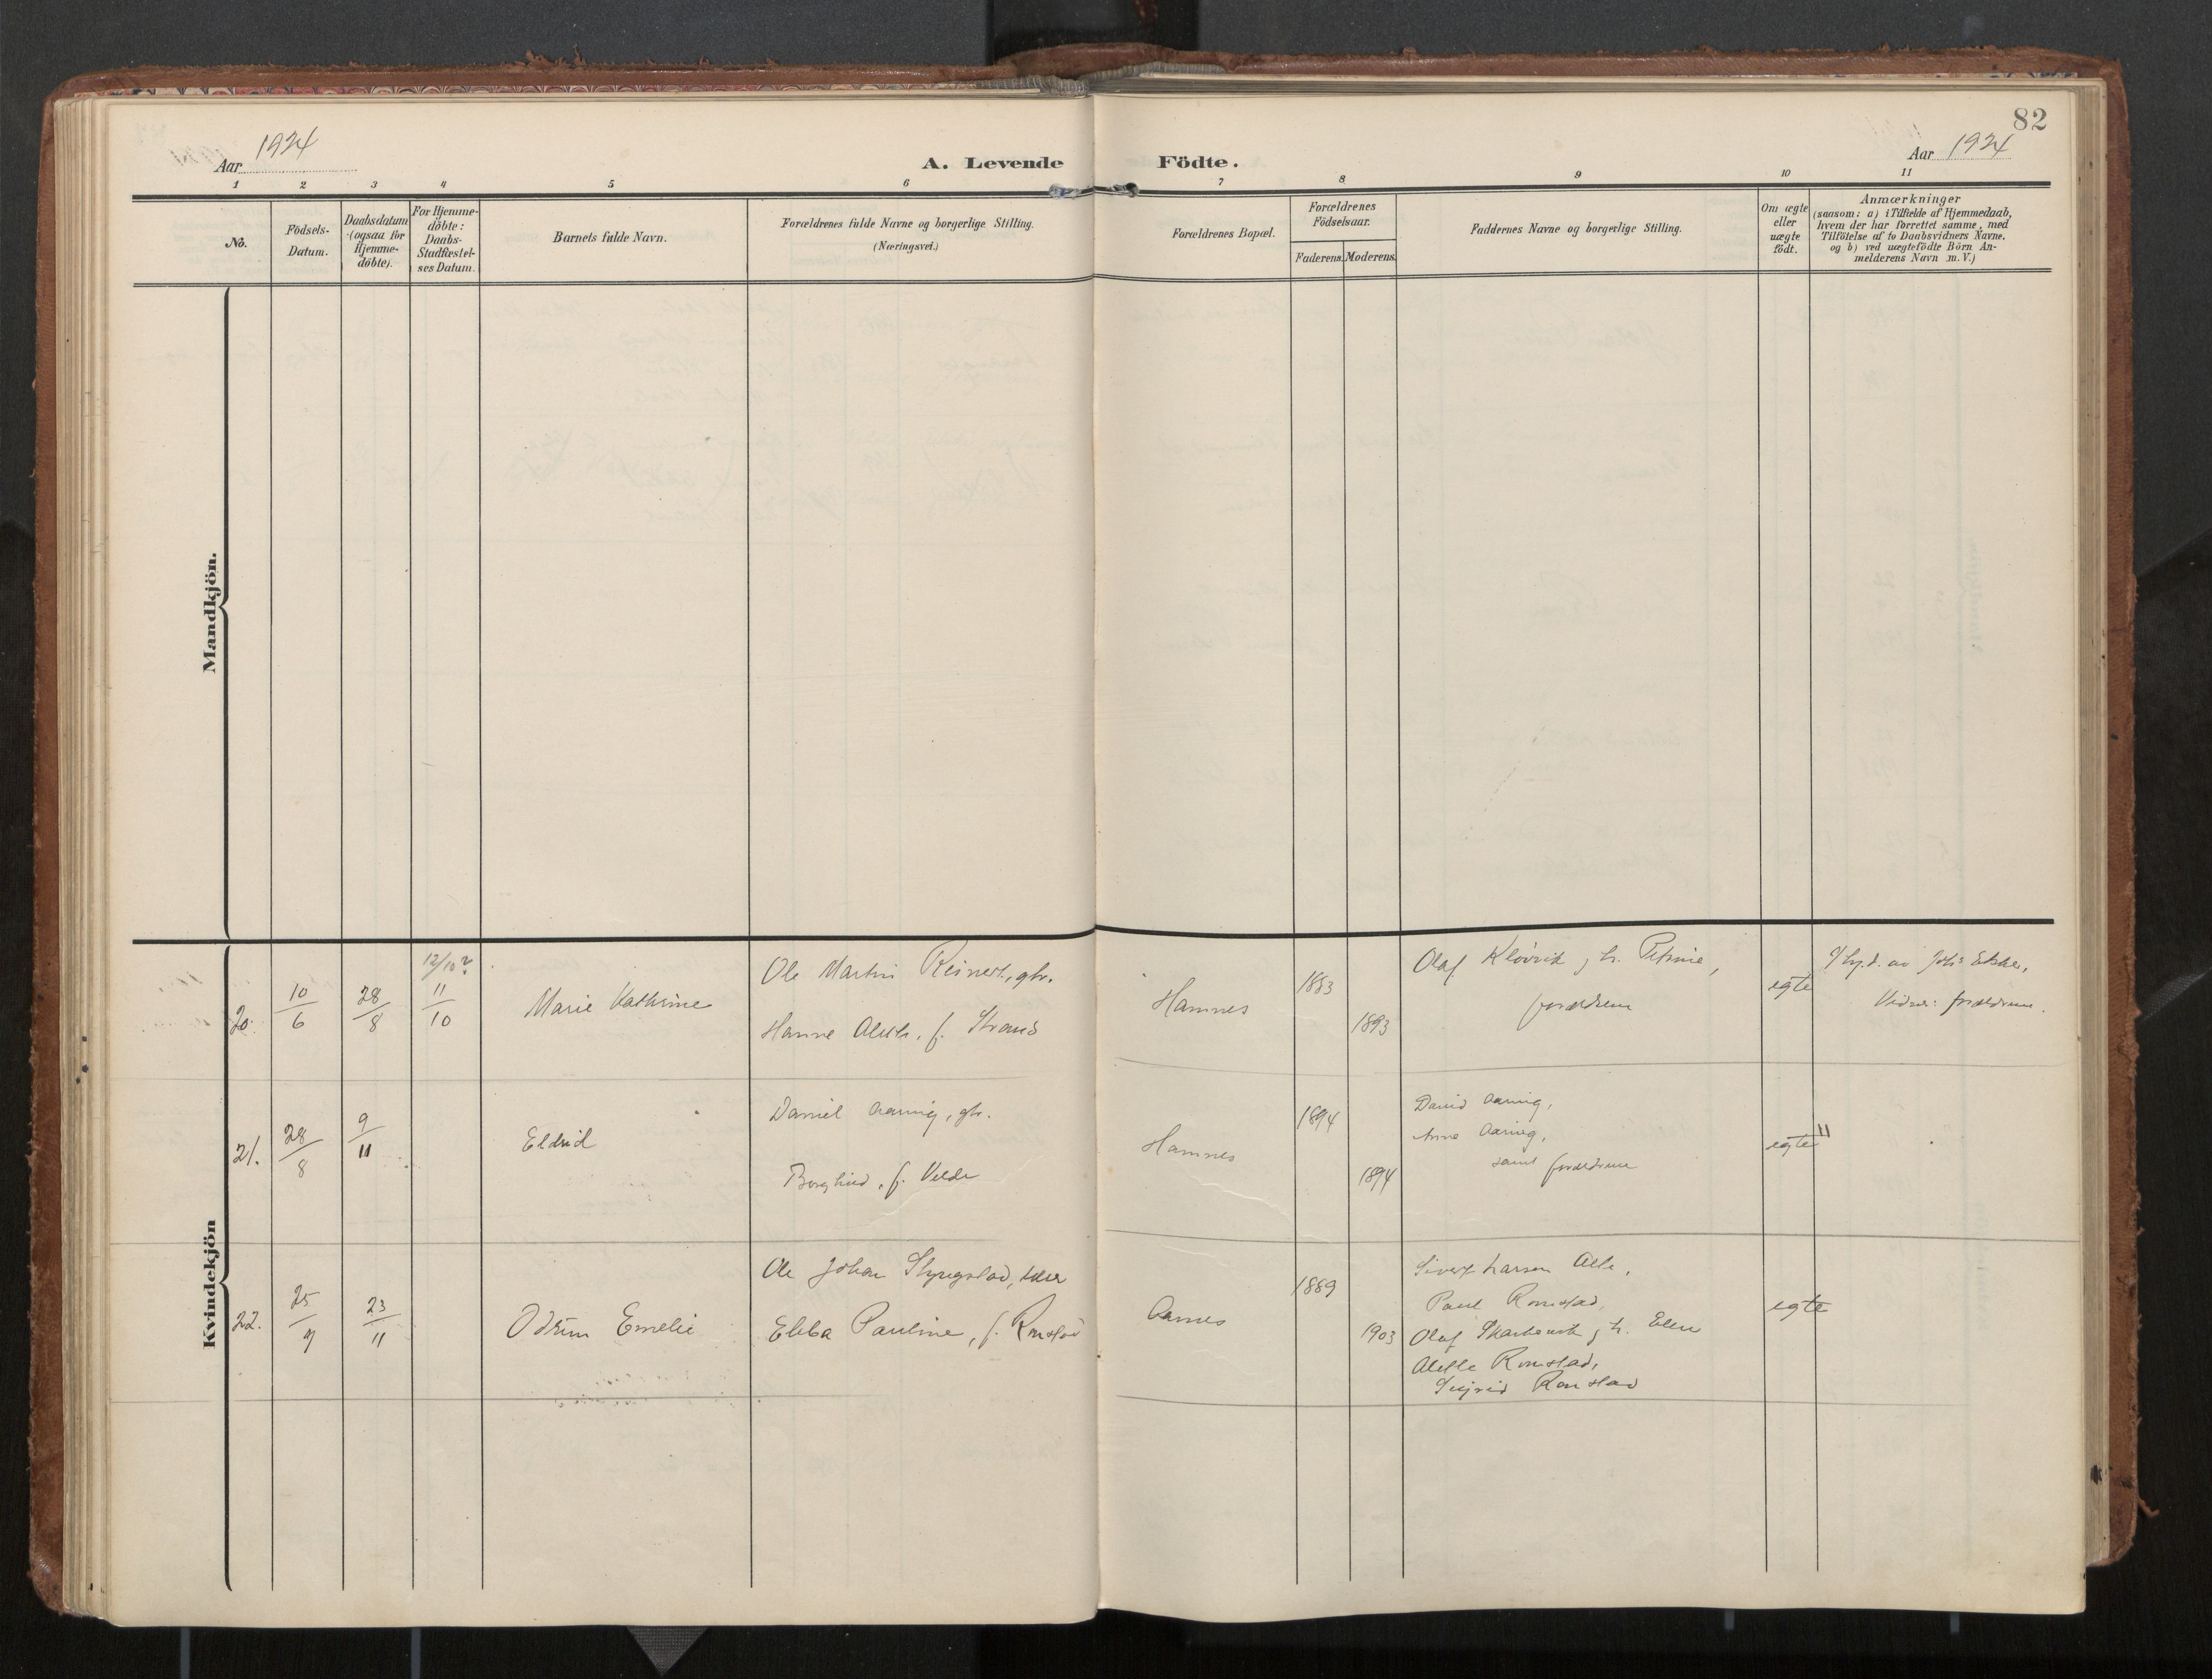 82
Aar 1924
A. Levende Födte.
Aar 1924
1 2 3 4 5 6 7 8 9 10 11
No.
Födsels-
Datum.
Daabsdatum
(ogsaa for
Hjemme-
döbte).
For Hjemme-
döbte:
Daabs-
Stadfæstel-
ses Datum.
Barnets fulde Navn.
Forældrenes fulde Navne og borgerlige Stilling.
(Næringsvei.)
Forældrenes Bopæl.
Forældrenes
Födselsaar.
Faderens. Moderens.
Faddernes Navne og borgerlige Stilling.
Om ægte
eller
uægte
födt.
Anmærkninger
(saasom: a) i Tilfælde af Hjemmedaab,
hvem der har forrettet samme, med
Tilföielse af to Daabsvidners Navne.
og b) ved uægtefödte Börn An-
melderens Navn m. V.)
Mandkjön.
Kvindekjön
20.
10/6
28/8
12/10?
11/10
Marie Kathrine
Ole Martin Reinert, gbr.
Hanne f. Strand
Hamnes
1883
1893
Olaf Kløvvik, h. Petrine,
forældrene
egte
Hj.d. av Johs
Vidner: forældrene.
21.
28/8
9/11
Eldrid
Daniel Aarnig, gbr.
Borghild, f. Velde
Hamnes
1894
1894
David Aarnig,
Anne Aarnig,
samt forældrene
egte
"
22.
25/9
23/11
Odrun Emelie
Ole Johan
Ebba Pauline, f. Romstad
Aarnes
1889
1903
Sivert Larsen
Paul Romstad,
Olaf h. Ellen
Alette Romstad,
Sigrid Romstad
egte